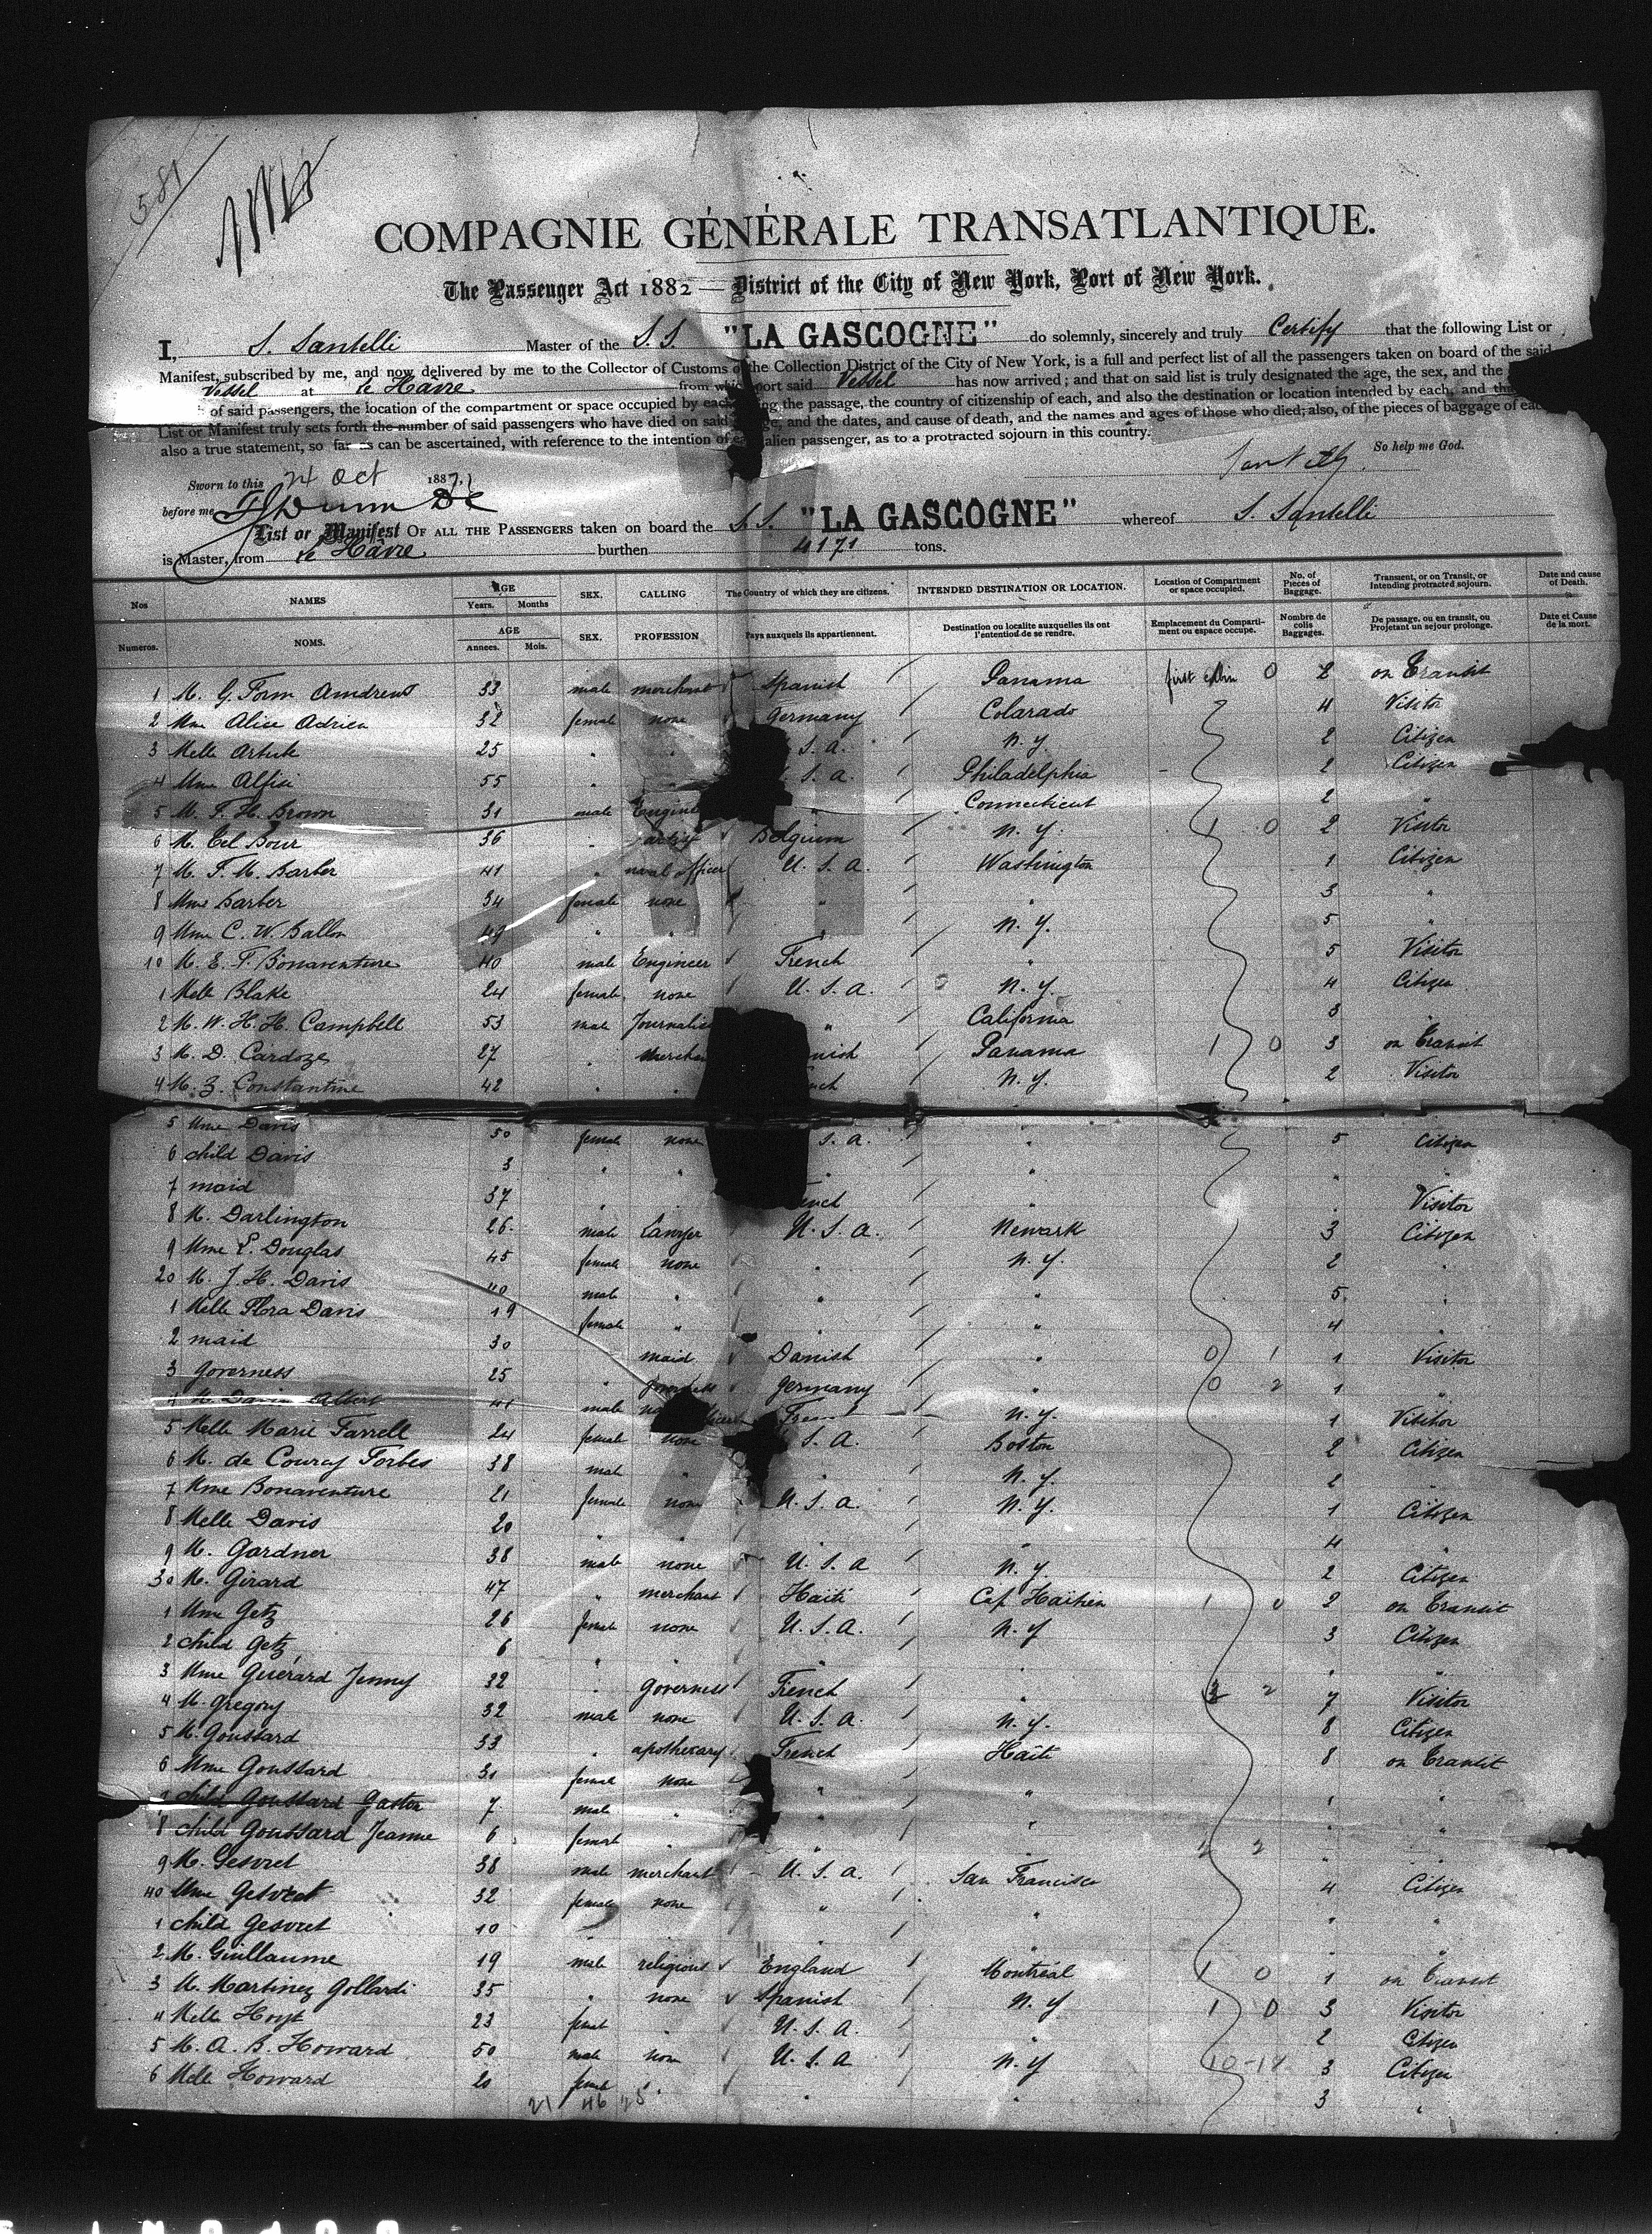 581
COMPAGNIE GÉNÉRALE TRANSATLANTIQUE.
The Passenger Act 1882 — District of the City of New York, Port of New York.
I, S. Santelli Master of the S.S. "LA GASCOGNE" do solemnly, sincerely and truly Certify that the following List or
Manifest, subscribed by me, and now delivered by me to the Collector of Customs of the Collection District of the City of New York, is a full and perfect list of all the passengers taken on board of the said
Vessel at le Hâvre from which port said Vessel has now arrived; and that on said list is truly designated the age, the sex, and the
of said passengers, the location of the compartment or space occupied by each during the passage, the country of citizenship of each, and also the destination or location intended by each, and that
List or Manifest truly sets forth the number of said passengers who have died on said and the dates, and cause of death, and the names and ages of those who died; also, of the pieces of baggage of each
also a true statement, so far as can be ascertained, with reference to the intention of alien passenger, as to a protracted sojourn in this country.
So help me God.
Sworn to this 24 Oct 1887
before me
List or Manifest OF ALL THE PASSENGERS taken on board the S.S. "LA GASCOGNE" whereof S. Santelli
is Master, from le Hâvre burthen 4171 tons.
Nos NAMES AGE Years. Months SEX. CALLING The Country of which they are citizens. INTENDED DESTINATION OR LOCATION. Location of Compartment or space occupied. No. of Pieces of Baggage. Transient, or on Transit, or Intending protracted sojourn. Date and cause of Death.
Numeros. NOMS. AGE Annees. Mois. SEX. PROFESSION Pays auxquels ils appartiennent. Destination ou localite auxquelles ils ont l'intention de se rendre. Emplacement du Compartiment ou espace occupe. Nombre de colis Baggages. De passage, ou en transit, ou Projetant un sejour prolonge. Date et Cause de la mort.
1 M. G. Andreus 33 male merchant Spanish Panama first cabin 0 2 on Transit
2 Mme Alice Adrien 32 female none Germany Colarado 4 Visitor
3 Melle 25 " " S. A. N. Y. 2 Citizen
4 Mme 55 " S. A. Philadelphia 2 Citizen
5 M. F. H. Brown 31 male Connecticut 2 "
6 M. Bour 36 " artist Belgium N. Y. 1 0 2 Visitor
7 M. F. M. Barber 41 " naval officer U. S. A. Washington 1 Citizen
8 Mme Barber 34 female none " " 3 "
9 Mme C. W. Ballon 49 " " " N. Y. 5 "
10 M. E. F. Bonaventure 40 male Engineer French " 5 Visitor
1 Melle Blake 24 female none U. S. A. N. Y. 4 Citizen
2 M. W. H. H. Campbell 53 male " California 3 "
3 M. D. Cardoze 27 " Panama 1 0 3 on Transit
4 M. Z. Constantine 42 " " N. Y. 2 Visitor
5 Mme Davis 50 female none S. A. " 5 Citizen
6 child Davis 3 " " " " " "
7 maid 37 " " Visitor
8 M. Darlington 26 male Lawyer U. S. A. Newark 3 Citizen
9 Mme E. Douglas 45 female none " N. Y. 2 "
20 M. J. H. Davis 40 male " " " 5 "
1 Melle Flora Davis 19 female " " " 4 "
2 maid 30 maid Danish " 0 1 1 Visitor
3 governess 25 " Germany " 0 2 1 "
4 M. Albert 41 male N. Y. 1 Visitor
5 Melle Marie Farrell 24 female none S. A. Boston 2 Citizen
6 M. de Courcy Forbes 38 male " " N. Y. 2 "
7 Mme Bonaventure 21 female none U. S. A. N. Y. 1 Citizen
8 Melle Davis 20 " " " 4 "
9 M. Gardner 38 male none U. S. A N. Y. 2 Citizen
30 M. Girard 47 " merchant Haïti Cap Haïtien 1 0 2 on Transit
1 Mme Getz 26 female none U. S. A. N. Y 3 Citizen
2 child Getz 6 " " " " "
3 Mme Guérard Jenny 32 " governess French " 2 7 Visitor
4 M. Gregory 32 male none U. S. A. N. Y. 8 Citizen
5 M. Goussard 33 " apothecary French Haïti 8 on Transit
6 Mme Goussard 31 female none " " " "
child Goussard Gaston 7 male " " " "
8 child Goussard Jeanne 6 female " " 2 2 " "
9 M. Gesvret 38 male merchant U. S. A. San Francisco 4 Citizen
40 Mme Gesvret 32 female none " " " "
1 child Gesvret 10 " " " "
2 M. Guillaume 19 male religious England Montréal 1 0 1 on Transit
3 M. Martinez Gollardi 35 " none Spanish N. Y 1 0 3 Visitor
4 Melle Hoyt 23 femal " U. S. A. " 2 Citizen
5 M. A. B. Howard 50 male none U. S. A N. Y 10-14 3 Citizen
6 Melle Howard 20 femal " " " 3 "
21 46 25